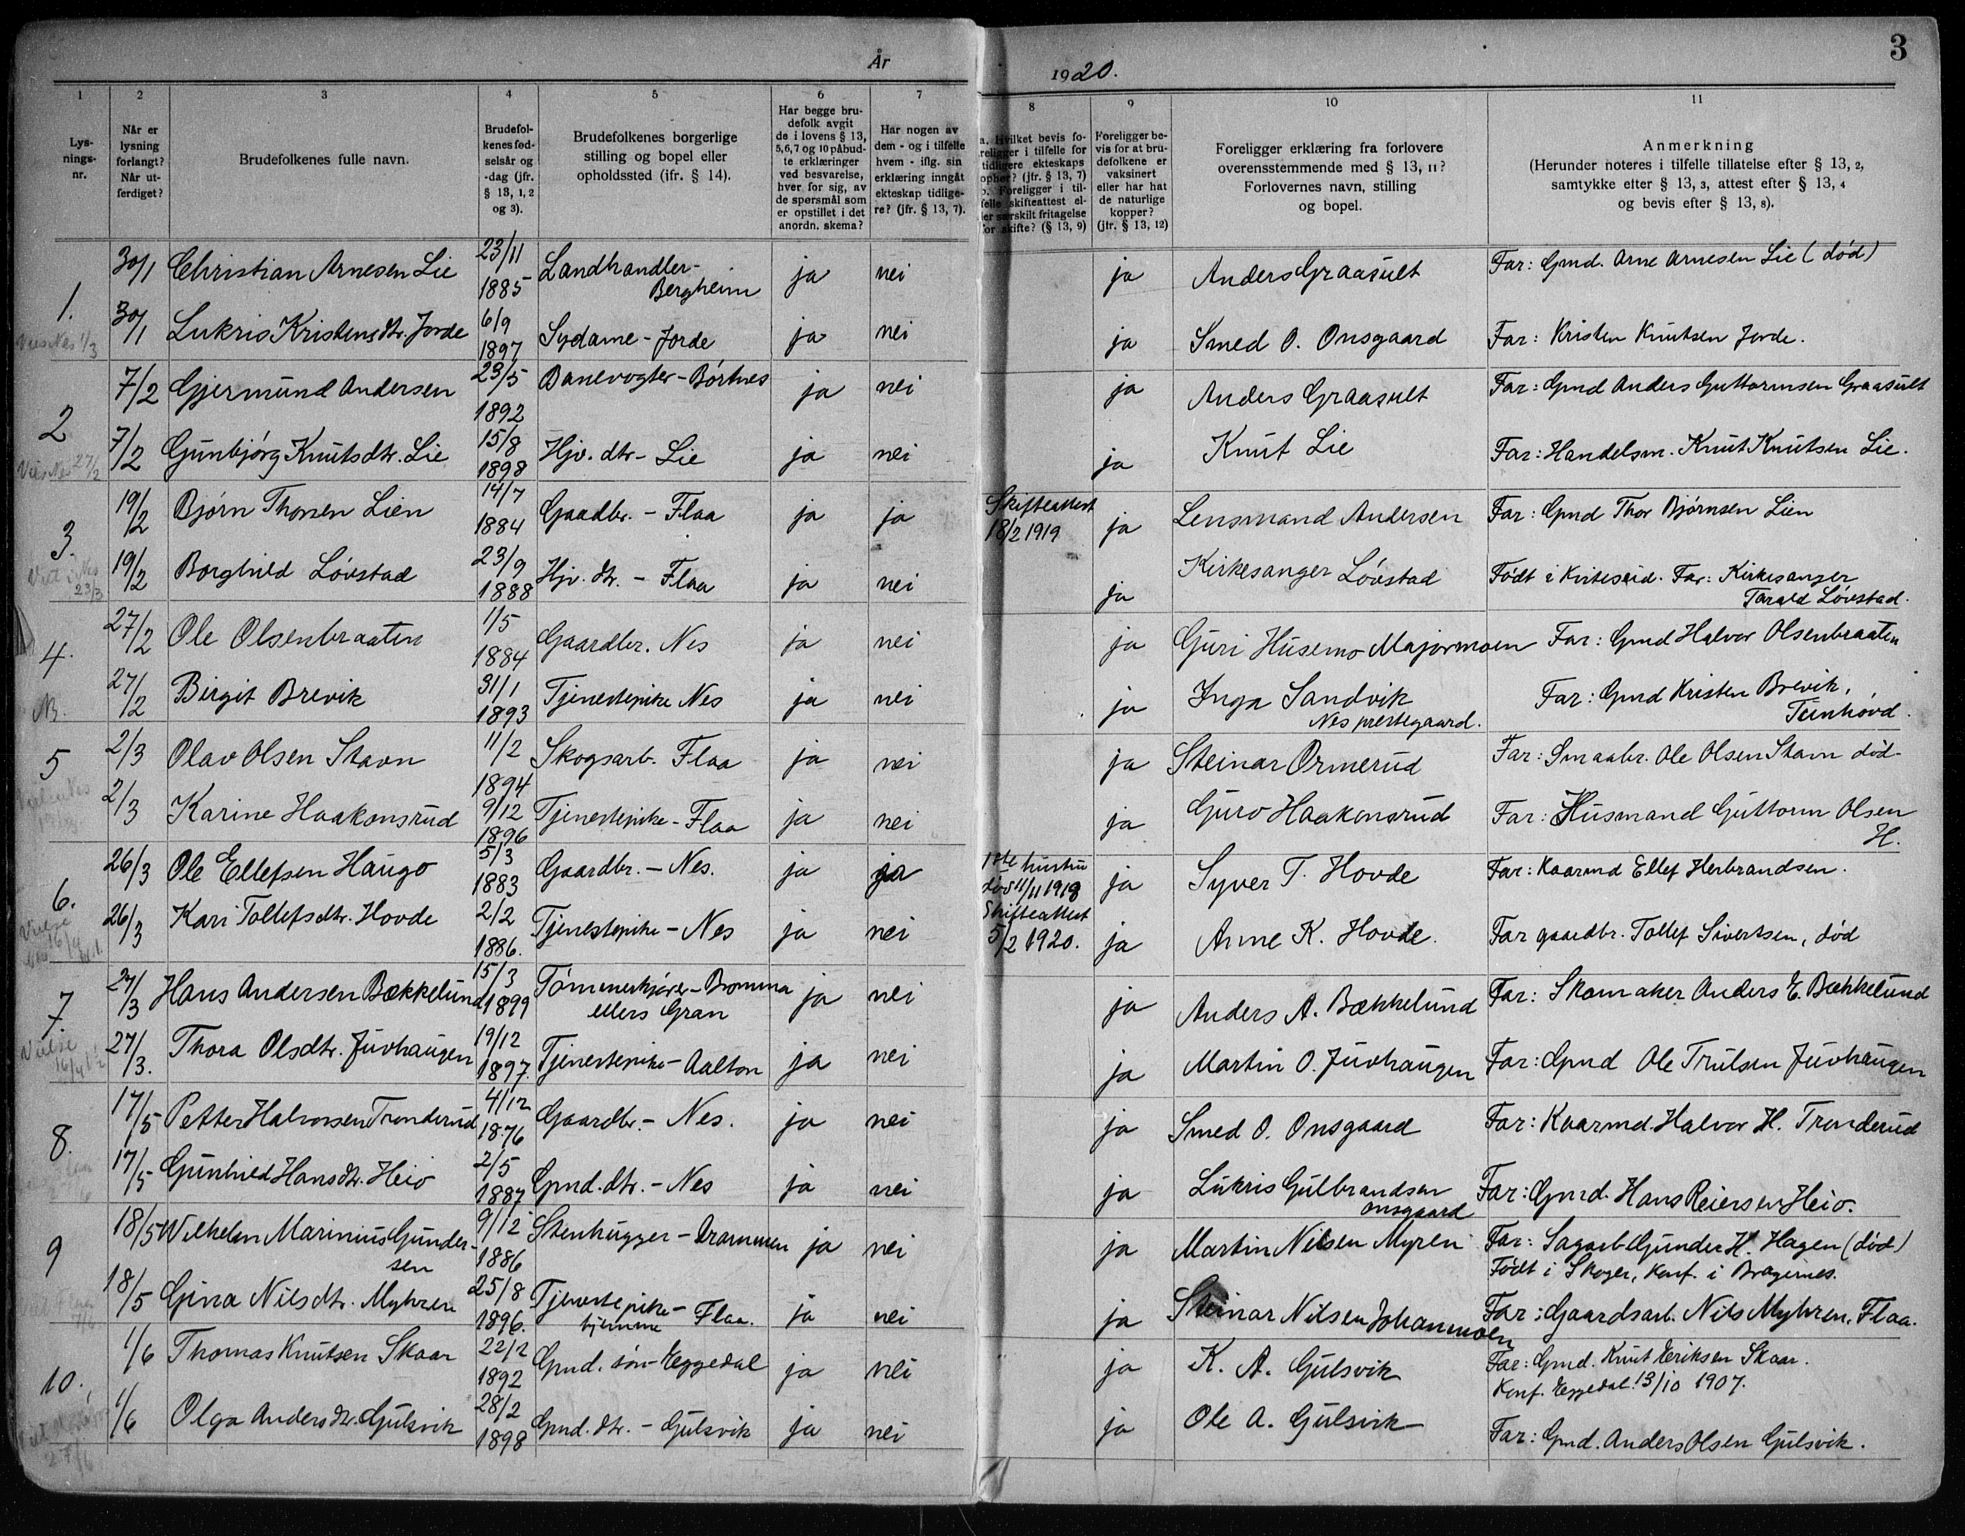 År
1920.
3
1
Lys-
nings-
nr.
2
Når er
lysning
forlangt?
Når ut-
ferdiget?
3
Brudefolkenes fulle navn.
4
Brudefol-
kenes fød-
selsår og
-dag (jfr.
§ 13, 1, 2
og 3).
5
Brudefolkenes borgerlige
stilling og bopel eller
opholdssted (ifr. § 14).
6
Har begge bru-
defolk avgit
de i lovens § 13,
5,6,7 og 10 påbud-
te erklæringer
ved besvarelse,
hver for sig, av
de spørsmål som
er opstillet i det
anordn. skema?
7
Har nogen av
dem - og i tilfelle
hvem - iflg. sin
erklæring inngåt
ekteskap tidlige-
re? (jfr. § 13, 7).
8
a. Hvilket bevis fo-
religger i tilfelle for
tidligere ekteskaps
ophør? (jfr. § 13, 7)
b. Foreligger i til-
felle skifteattest el-
ler særskilt fritagelse
for skifte? (§ 13, 9)
9
Foreligger be-
vis for at bru-
defolkene er
vaksinert
eller har hat
de naturlige
kopper?
(jfr. § 13, 12)
10
Foreligger erklæring fra forlovere
overensstemmende med § 13, 11?
Forlovernes navn, stilling
og bopel.
11
Anmerkning
(Herunder noteres i tilfelle tillatelse efter § 13, 2,
samtykke efter § 13, 3, attest efter § 13, 4
og bevis efter § 13, 8).
1.
30/1 Christian Arnesen Lie 23/11 1885 Landhandler- Bergheim ja nei ja Anders Graasult Far: Gmd. Arne Arnesen Lie (død)
30/1 Lukris Kristensdtr. Jorde 6/9 1897 Sydame - Jorde ja nei ja Smed O. Onsgaard Far: Kristen Knutsen Jorde.
Vies Nes 1/3
2
7/2 Gjermund Andersen 23/5 1892 Banevogter - Børtnes ja nei ja Anders Graasult Far: Gmd Anders Guttormsen Graasult
7/2 Gunbjørg Knutsdtr. Lie 15/8 1898 Hjv. dtr - Lie ja nei ja Knut Lie Far: Handelsm. Knut Knutsen Lie.
Vies Nes 27/2
3.
19/2 Bjørn Thorsen Lien 14/7 1884 Gaadbr. - Flaa ja ja Skifteattest 18/2 1919 ja Lensmand Andersen Far: Gmd Thor Bjørnsen Lien
19/2 Borghild Løvstad 23/9 1888 Hjv. dtr. - Flaa ja nei ja Kirkesanger Løvstad Født i Kviteseid. Far: Kirkesanger
Tarald Løvstad.
23/3
4.
27/2 Ole Olsenbraaten 1/5 1884 Gaardbr. Nes ja nei ja Guri Husemo Majormoen Far: Gmd Halvor Olsenbraaten
27/2 Birgit Brevik 31/1 1893 Tjenestepike Nes ja nei ja Inga Sandvik Nes prestegaard. Far: Gmd Kristen Brevik,
Teinhovd.
5
2/3 Olav Olsen Stavn 11/2 1894 Skogsarb. Flaa ja nei ja Steinar Ormerud Far: Smaabr. Ole Olsen Stavn død-
2/3 Karine Haakonsrud 9/12 1896 Tjenestepike - Flaa ja nei ja Guro Haakonsrud Far: Husmand Guttorm Olsen
H.
6.
26/3 Ole Ellefsen Haugo 5/3 1883 Gaardbr. - Nes. ja ja 1ste hustru død 11/11 1918 ja Syver T. Hovde Far: Kaarmd Ellef Herbrandsen.
26/3 Kari Tollefsdtr. Hovde 2/2 1886. Tjenestepike - Nes ja nei Skifteattest 5/2 1920. ja Anne K. Hovde. Far gaardbr. Tollef Sivertsen, død
7.
27/3 Hans Andersen Bækkelund 15/3 1899 Tømmerkjører - Bromma
ellers Gran ja nei ja Anders A. Bækkelund Far: Skomaker Anders E. Bækkelund
27/3. Thora Olsdtr. Juvhaugen 19/12 1897. Tjenestepike - Aalton ja nei ja Martin O. Juvhaugen Far: Gmd Ole Trulsen Juvhaugen
8.
17/5 Petter Halvorsen Tronderud 4/12 1876 Gaardbr. - Nes. ja nei ja Smed O. Onsgaard Far: Kaarmd. Halvor H. Tronderud
17/5 Gunhild Hansdtr. Heio 2/5 1887 Gmd. dtr. - Nes ja nei ja Lukris Gulbrandsen
Onsgaard Far: Gmd. Hans Reiersen Heio.
9
18/5 Wilhelm Marinius Gunder-
sen 9/12 1886 Stenhugger - Drammen ja nei ja Martin Nilsen Myren Far: Sagarb. Gunder H. Hagen (død)
Født i Skoger, Konf. i Bragernes.
18/5 Gina Nilsdtr. Myhren 25/8 1896. Tjenestepike -
hjemme Flaa. ja nei ja Steinar Nilsen Johanmoen Far: Gaardsarb. Nils Myhren, Flaa.
10.
1/6 Thomas Knutsen Skaar 22/2 1892 Gmd. søn - Eggedal ja nei ja K. A. Gulsvik Far: Gmd. Knut Eriksen Skaar.
Konf. Eggedal 13/10 1907.
1/6 Olga Andersdtr. Gulsvik 28/2 1898 Gmd. dtr. - Gulsvik ja nei ja Ole A. Gulsvik Far: Gmd. Anders Olsen Gulsvik.
27/6